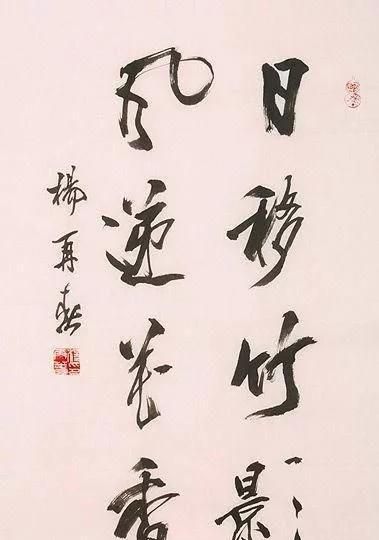 日移竹影
风递花香
楊再春